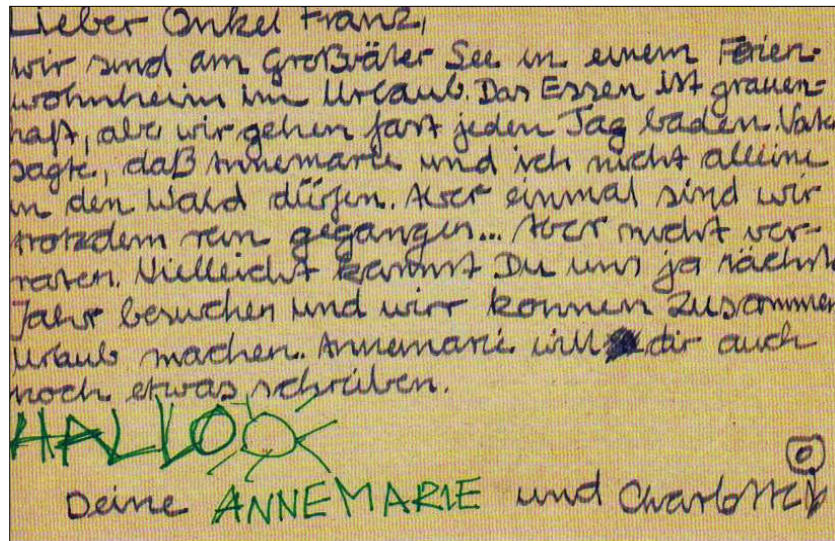 Lieber Onkel Franz,
wir sind am Großväter See in einem Ferien-
wohnheim im Urlaub. Das Essen ist grauen-
haft, aber wir gehen fast jeden Tag baden. Vate
sagte, daß Annemarie und ich nicht alleine
in den Wald dürfen. Aber einmal sind wir
trotzdem rein gegangen... Aber nicht ver-
raten. Vielleicht kannst Du uns ja nächst
Jahr besuchen und wir können zusammen
Urlaub machen. Annemarie will dir auch
noch etwas schreiben.
HALLO
Deine ANNEMARIE und Charlotte